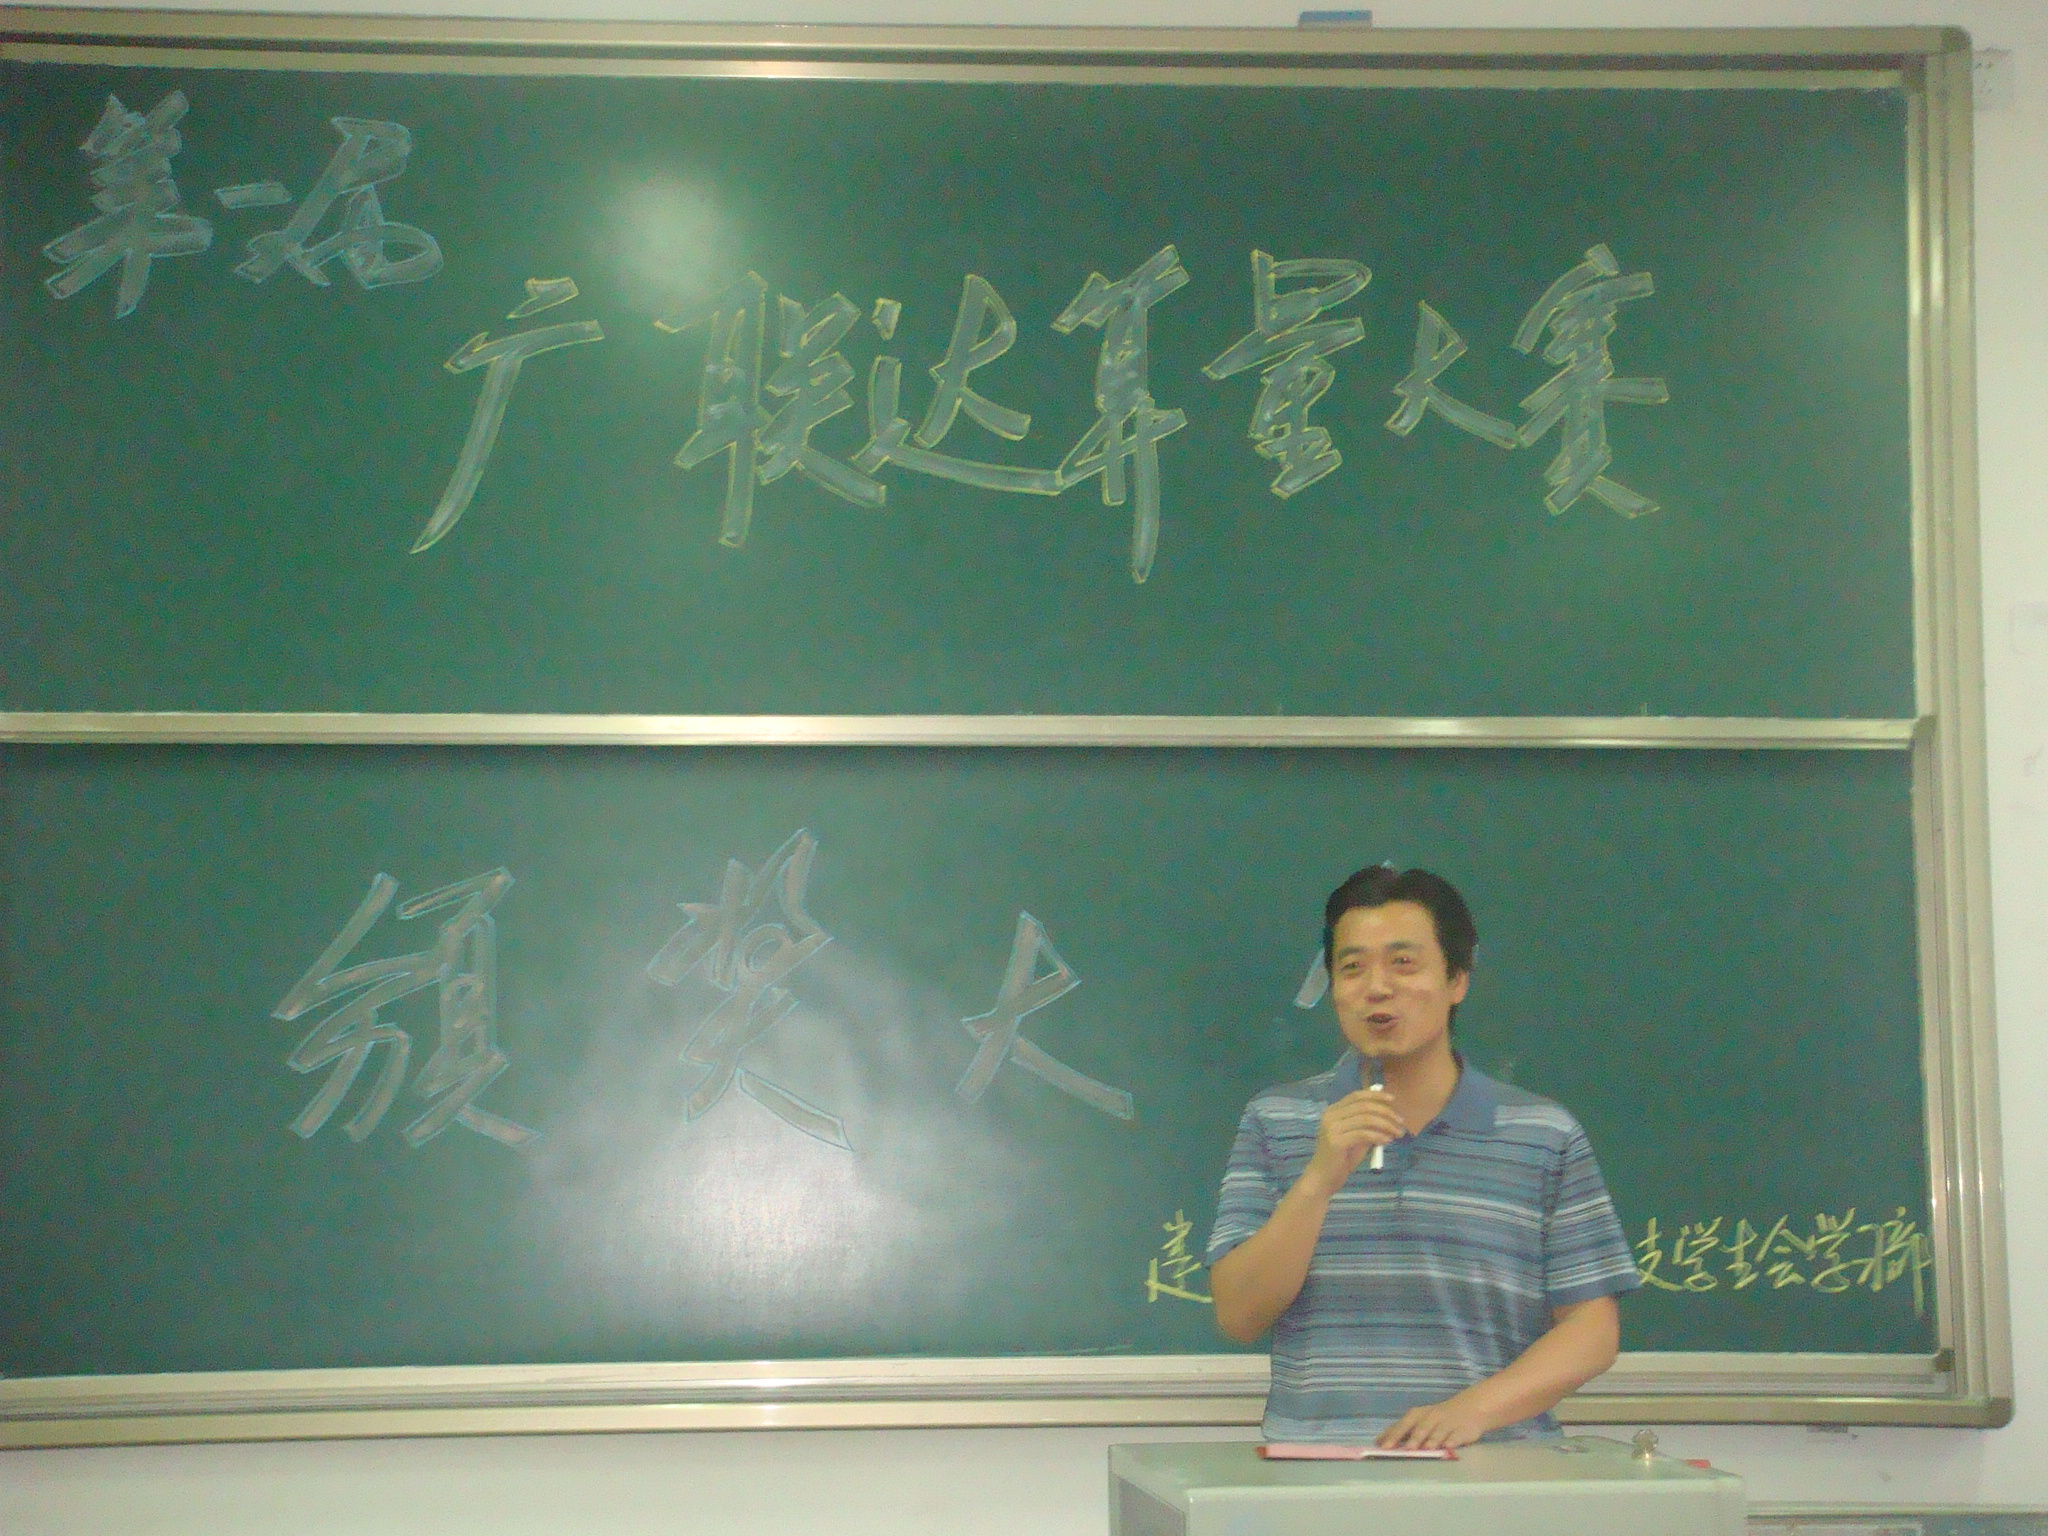 第一届
广联达算量大赛
颁奖大
建
支学生会学术部